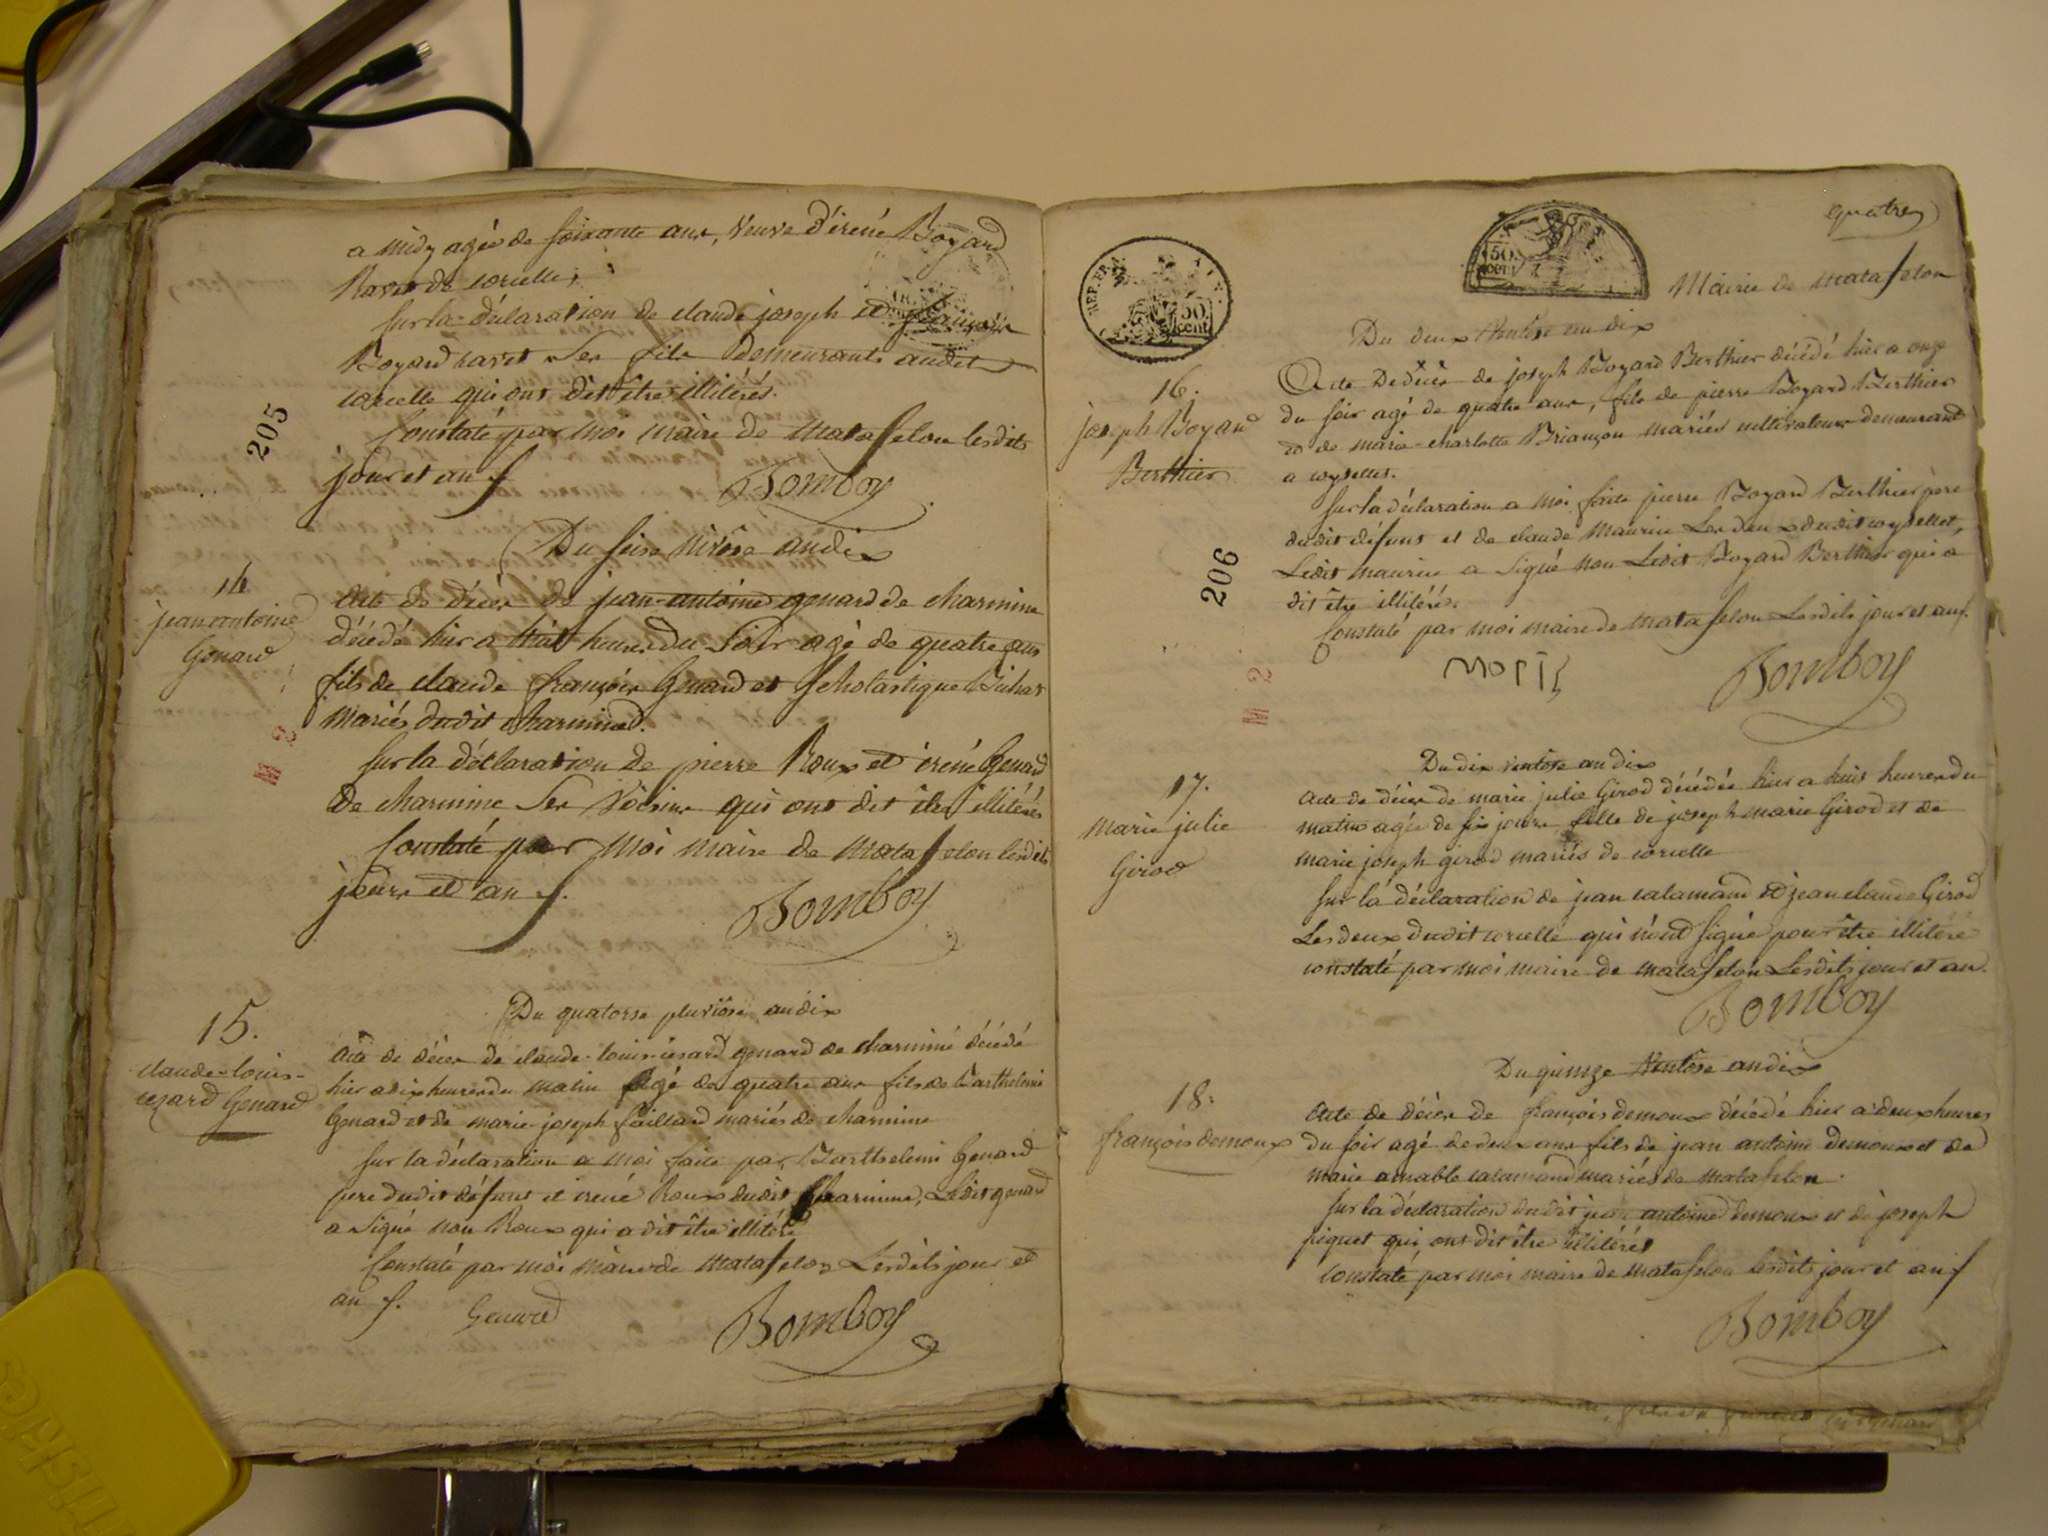 a midy agée de soixante ans, veuve d'irené Boyard
Ravet de corcelle,
sur la déclaration de claude joseph et françois
Boyard ravet ses fils demeurants audit
corcelle qui ont dit être illitérés.
Constaté par moi maire de matafelon lesdits
jour et an
205
Bomboy
Du seise nivôse an dix
14
jean antoine
Genard
acte de décès de jean-antoine genard de charmine
décédé hier a huit heures du soir agé de quatre ans
fils de claude françois Genard et Scholastique
mariés dudit charmine.
sur la déclaration de pierre Roux et irené Genard
de charmine ses voisins qui ont dit être illitérés
Constaté par moi maire de matafelon lesdits
jours et an
M 2
Bomboy
Du quatorse pluviôse an dix
15.
claude-louis-
cezard Genard
acte de décès de claude-louis-cesard genard de charmine décédé
hier a dix heures du matin agé de quatre ans fils de Barthelemi
Genard et de marie joseph faillard mariés de charmine
sur la déclaration a moi faite par Barthelemi Genard
pere dudit défunt et irené Roux dudit charmine, Ledit genard
a signé non Roux qui a dit être illitéré
Constaté par moi maire de matafelon Lesdits jour et
an
Genard
Bomboy
quatre
REP. FRA.
50
cent.
50
cent.
Mairie de matafelon
Du deux ventôse an dix
16.
joseph Boyard
Berthier
Acte de décès de joseph Boyard Berthier décédé hier a onze
du soir agé de quatre ans, fils de pierre Boyard Berthier
et de marie-charlotte Briançon mariés cultivateurs demeurant
a coyselet.
sur la déclaration a moi faite pierre Boyard Berthier père
dudit défunt et de claude maurin Les deux dudit coyselet,
Ledit maurin a signé non Ledit Boyard Berthier qui a
dit être illitéré.
Constaté par moi maire de matafelon Lesdits jour et an
206
M 2
Bomboy
Du dix ventôse an dix
17.
marie julie
Girod
acte de décès de marie julie Girod décédée hier a huit heures du
matin agée de six jours fille de joseph marie Girod et de
marie joseph girod mariés de corcelle
sur la déclaration de jean calamand et jean claude Girod
Les deux dudit corcelle qui n'ont signé pour être illitéré
constaté par moi maire de matafelon Lesdits jour et an.
Bomboy
Du quinze Ventôse an dix
18.
françois demoux
acte de décès de françois demoux décédé hier a deux heures
du soir agé de deux ans fils de jean antoine demoux et de
marie amable calamand mariés de matafelon.
sur la déclaration dudit jean antoine demoux et de joseph
piquet qui ont dit être illitérés
Constaté par moi maire de matafelon lesdits jour et an
Bomboy